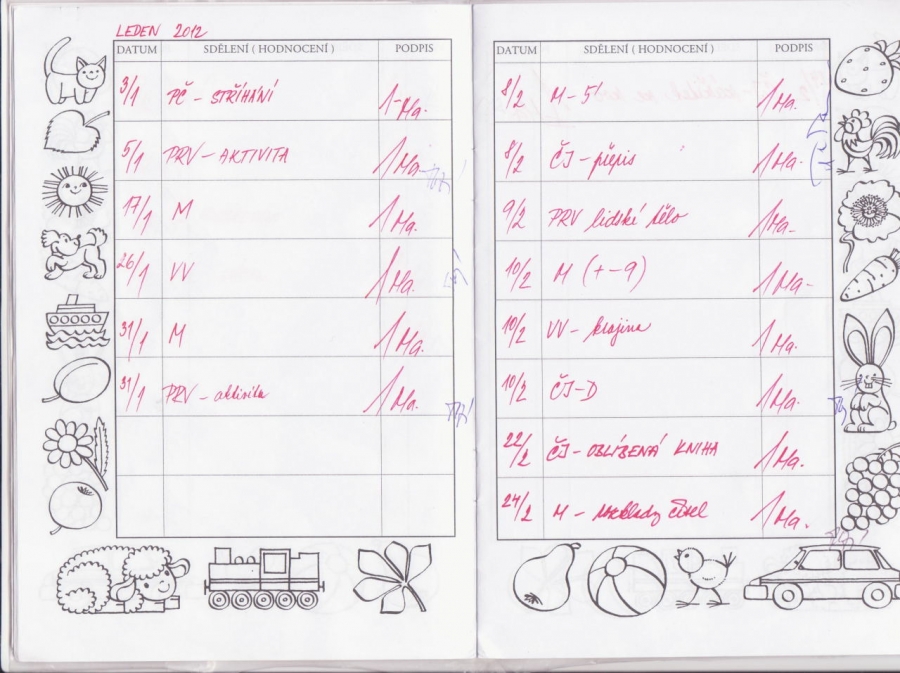 LEDEN 2012
DATUM SDĚLENÍ ( HODNOCENÍ ) PODPIS
3/1 PČ - STŘÍHÁNÍ 1- Ma.
5/1 PRV - AKTIVITA 1 Ma.
17/1 M 1 Ma.
26/1 VV 1 Ma.
31/1 M 1 Ma.
31/1 PRV - aktivita 1 Ma.
DATUM SDĚLENÍ ( HODNOCENÍ ) PODPIS
8/2 M - 5' 1 Ma.
8/2 ČJ - přepis 1 Ma.
9/2 PRV lidské tělo 1 Ma.
10/2 M (+ - 9) 1 Ma.
10/2 VV - krajina 1 Ma.
10/2 ČJ - D 1 Ma.
22/2 ČJ - OBLÍBENÁ KNIHA 1 Ma.
24/2 M - rozklady čísel 1 Ma.